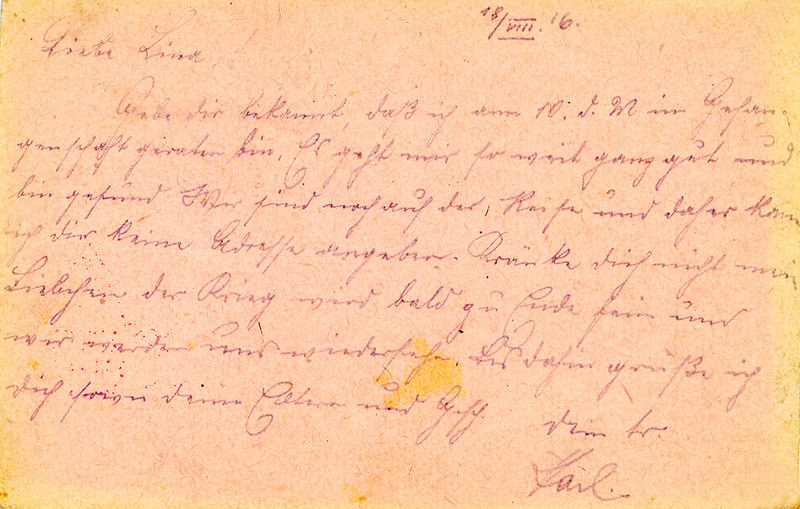 18/VIII. 16.
Liebe Lina,
Gebe dir bekannt, daß ich am 10. d. M im Gefan-
genschaft geraten bin. Es geht mir so weit ganz gut und
bin gesund Wir sind noch auf der Reise und daher kann
ich dir keine Adresse angeben. Kränke dich nicht mein
Liebchen der Krieg wird bald zu Ende sein und
wir werden uns wiedersehn. Bis dahin grüße ich
dich sowie deine Eltern und Gesch.
dein tr.